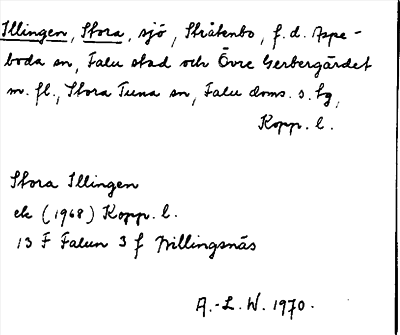 Illingen, Stora, sjö, Stråtenbo, f.d. Aspe-
boda sn, Falu stad och Övre Gerbergärdet
m. fl., Stora Tuna sn, Falu doms. s. tg,
Kopp. l.
Stora Illingen
ek (1968) Kopp. l.
13 F Falun 3 f Willingsnäs
A.-L. W. 1970.